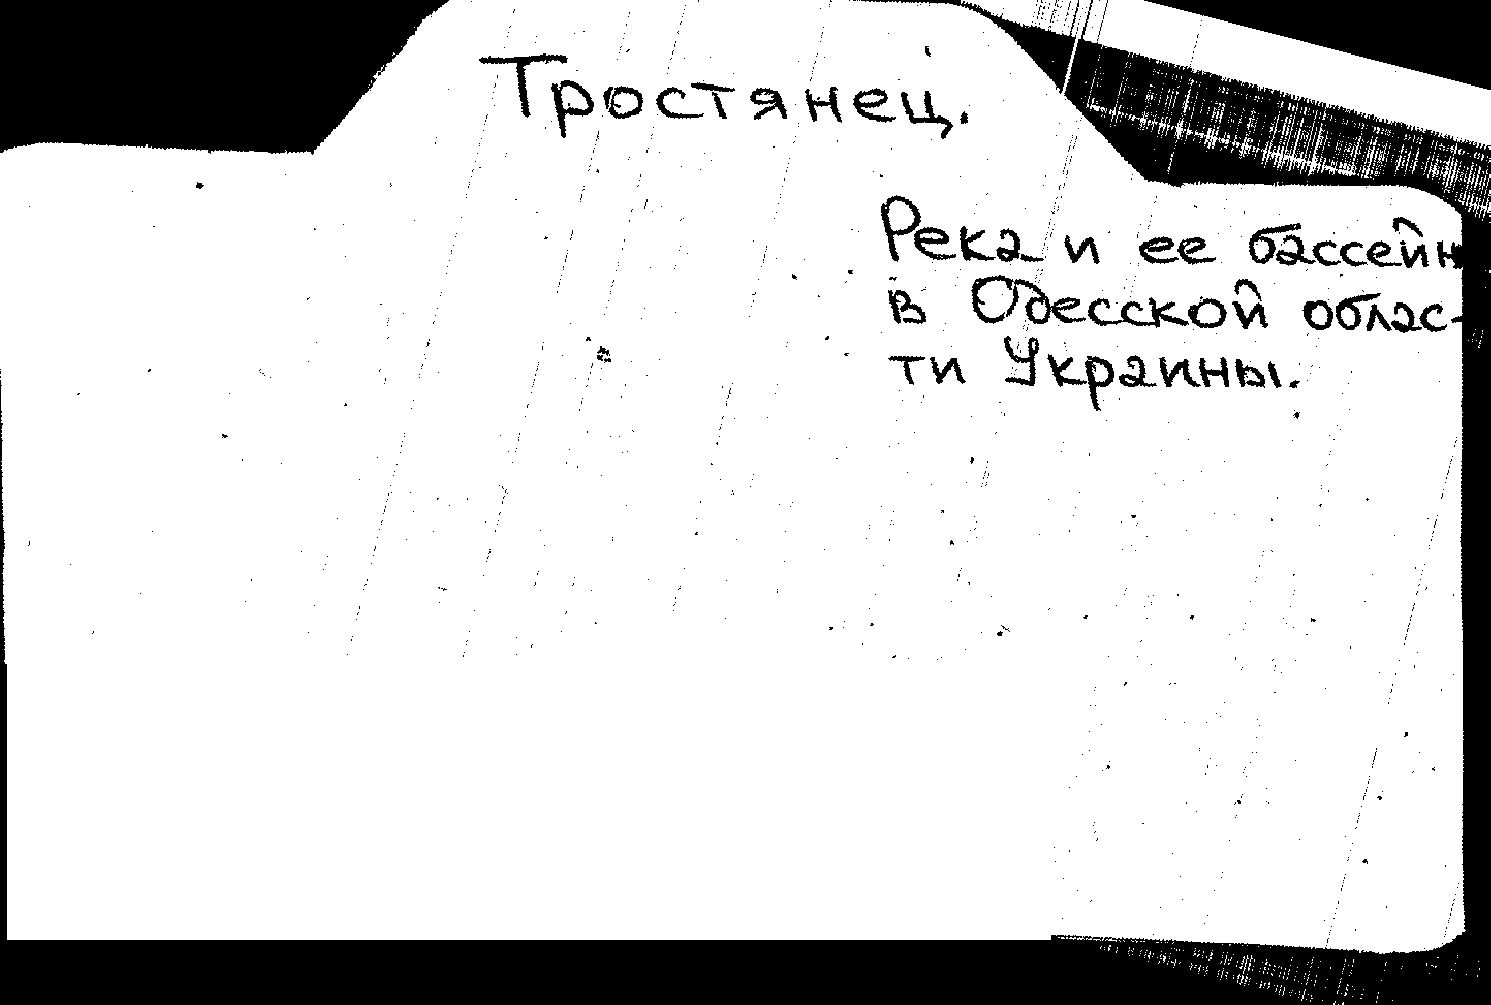 Тростянец.
Река и ее бассейн
в Одесской облас-
ти Украины.